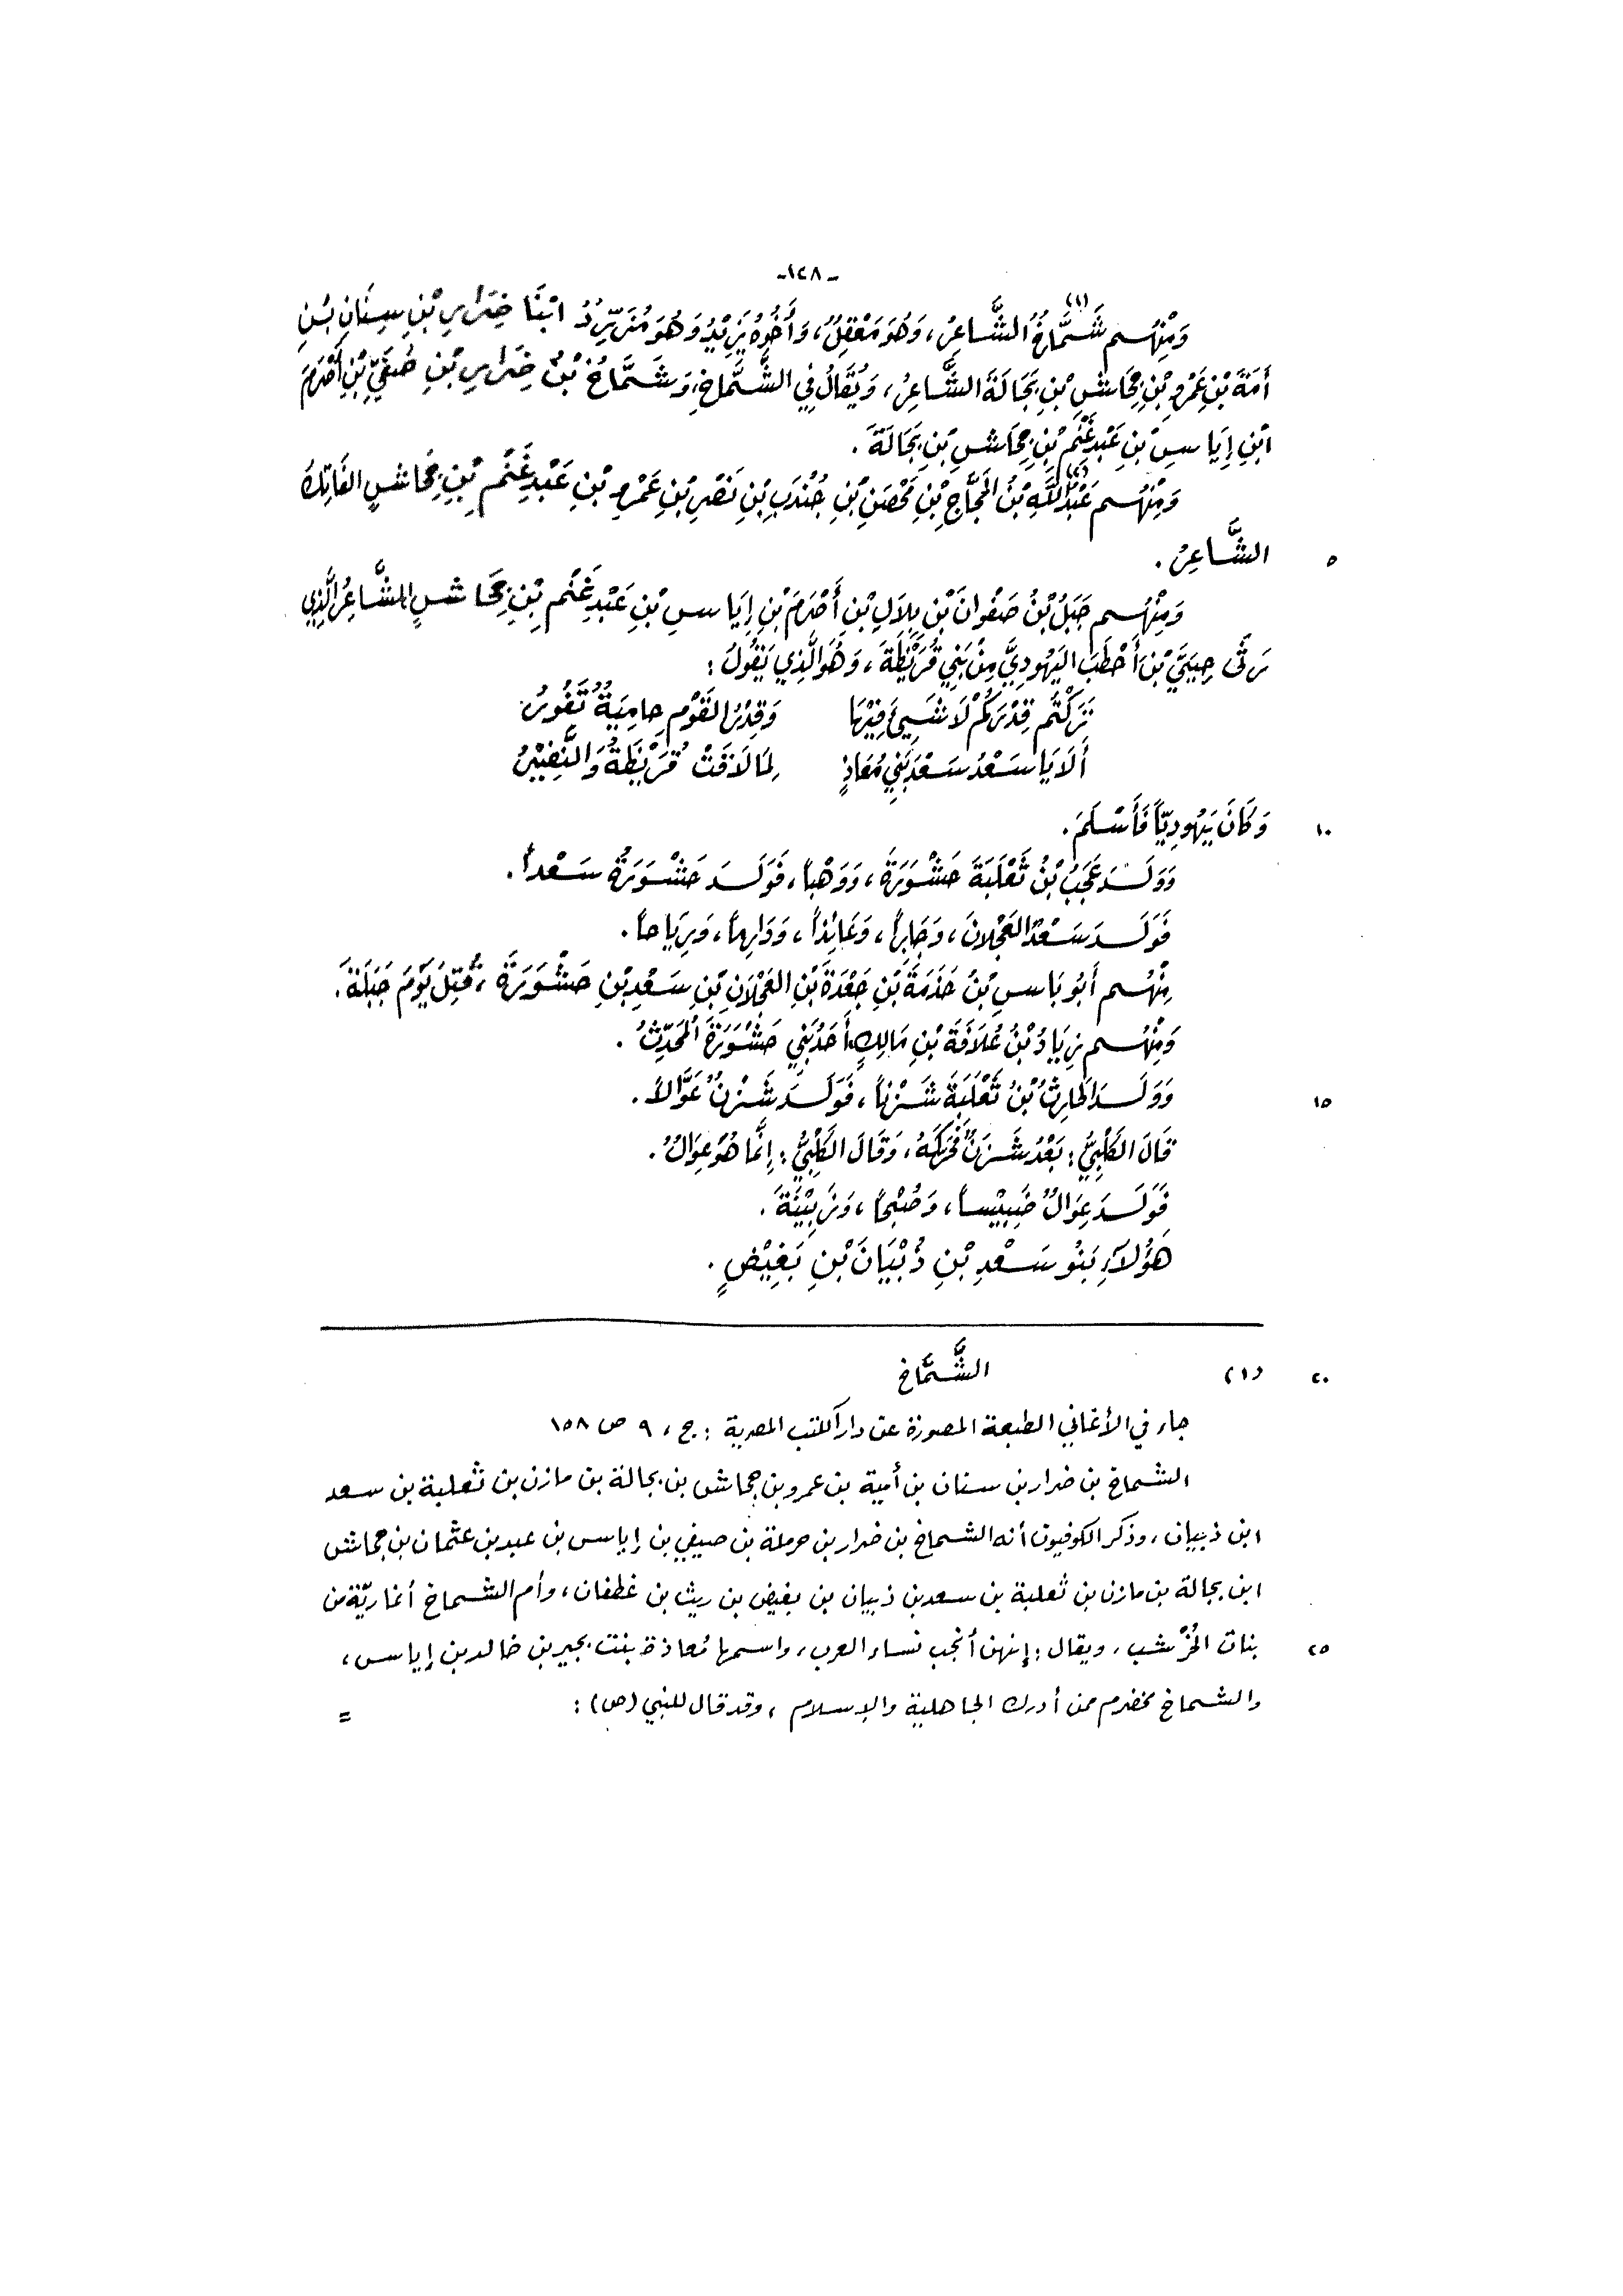 -١٢٨-
وَمِنْهُم شَمَّاخُ(١) الشَّاعِرُ، وَهُوَ مَعْقِلٌ، وَأَخُوهُ يَزِيْدُ وَهُوَ مُزَرِّدٌ ابْنَا ضِرَارِ بْنِ سِنَانِ بْنِ
أَمَةَ بْنِ عَمْرِو بْنِ جِحَاشِ بْنِ بَجَالَةَ الشَّاعِرُ، وَيُقَالُ فِي الشَّمَّاخِ، وَشَمَّاخُ بْنُ ضِرَارِ بْنِ صَيْفِيِّ بْنِ أَصْرَمَ
ابْنِ إِيَاسِ بْنِ عَبْدِ غَنْمِ بْنِ جِحَاشِ بْنِ بَجَالَةَ.
وَمِنْهُم عَبْدُ اللَّهِ(٢) بْنُ الحَجَّاجِ بْنِ مِحْصَنِ بْنِ جُنْدَبِ بْنِ نَصْرِ بْنِ عَمْرِو بْنِ عَبْدِ غَنْمِ بْنِ جِحَاشٍ الفَاتِكُ
الشَّاعِرُ. ٥
وَمِنْهُم جَبَلُ بْنُ صَفْوَانَ بْنِ بِلَالِ بْنِ أَصْرَمَ بْنِ إِيَاسِ بْنِ عَبْدِ غَنْمِ بْنِ جِحَاشٍ الشَّاعِرُ الَّذِي
رَثَّى حِيَيَّ بْنَ أَخْطَبَ اليَهُودِيَّ مِنْ بَنِي قُرَيْظَةَ، وَهُوَ الَّذِي يَقُولُ:
تَرَكْتُم قِدْرَكُمْ لَا شَيْئَ فِيْهَا وَقِدْرُ القَوْمِ حامِيَةٌ تَفُورُ
أَلَا يَا سَعْدُ سَعْدَ بَنِي مُعَاذٍ لِمَا لَاقَتْ قُرَيْظَةُ وَالنَّضِيْرُ
وَكَانَ يَهُودِيّاً فَأَسْلَمَ. ١٠
وَوَلَدَ عَجَبُ بْنُ ثَعْلَبَةَ حَشْوَرَةَ، وَوَهْباً، فَوَلَدَ حَشْوَرَةُ سَعْداً.
فَوَلَدَ سَعْدٌ العَجْلانَ، وَجَابِراً، وَعَائِذاً، وَدَارِماً، وَرِيَاحاً.
مِنْهُم أَبُو يَاسِ بْنُ حَذَمَةَ بْنِ جَعْدَةَ بْنِ العَجْلَانِ بْنِ سَعْدِ بْنِ حَشْوَرَةَ، قُتِلَ يَوْمَ جَبَلَةَ.
وَمِنْهُم زِيَادُ بْنُ عُلَاقَةَ بْنِ مَالِكٍ أَحَدُ بَنِي حَشْوَرَةَ المُحَدِّثُ.
وَوَلَدَ الحَارِثُ بْنُ ثَعْلَبَةَ شَزْناً، فَوَلَدَ شَزْنٌ عَوَّالاً. ١٥
قَالَ الكَلْبِيُّ: بَعْدُ شَزَنٌ فَحَرَّكَهُ، وَقَالَ الكَلْبِيُّ: إِنَّمَا هُوَ عِوَالٌ.
فَوَلَدَ عِوَالٌ خَبِيْساً، وَصُبْحاً، وَزَبِيْنَةَ.
هَؤُلَاءِ بَنُو سَعْدِ بْنِ ذُبْيَانَ بْنِ بَغِيْضٍ.
(١) الشَّمَّاخ ٢٠
جاء في الأغاني الطبعة المصورة عن دار الكتب المصرية: ج، ٩ ص ١٥٨
الشماخ بن ضرار بن سنان بن أمية بن عمرو بن جحاش بن بجالة بن مازن بن ثعلبة بن سعد
ابن ذبيان، وذكر الكوفيون أنه الشماخ بن ضرار بن حرملة بن صيفي بن إياس بن عبد بن عثمان بن جحاش
ابن بجالة بن مازن بن ثعلبة بن سعد بن ذبيان بن بغيض بن ريث بن غطفان، وأم الشماخ أنماريّة من
بنات الخُرْشب، ويقال: إنهن أنجب نساء العرب، واسمها مُعاذة بنت بجير بن خالد بن إياس، ٢٥
والشماخ مخضرم ممن أدرك الجاهلية والإسلام، وقد قال للنبي (ص): =